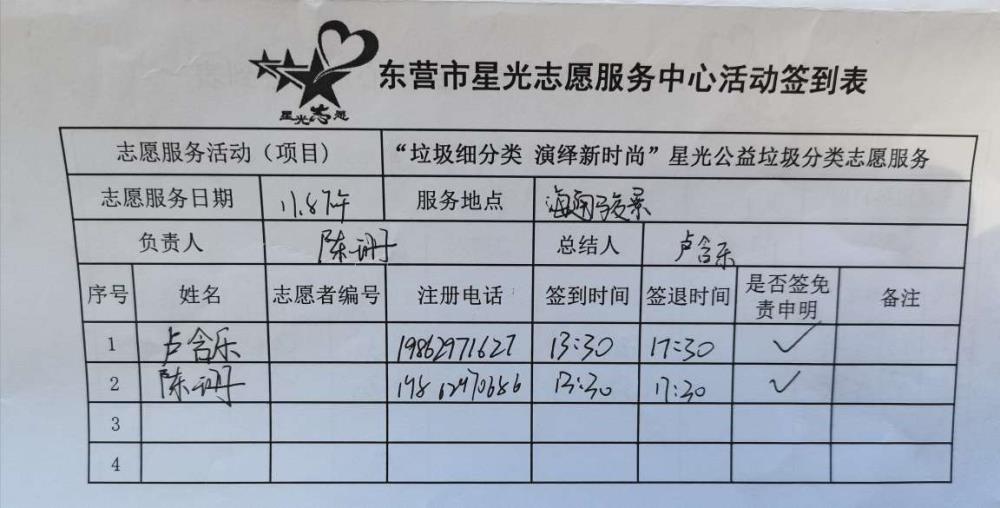 星光志愿
东营市星光志愿服务中心活动签到表
志愿服务活动（项目） “垃圾细分类 演绎新时尚”星光公益垃圾分类志愿服务
志愿服务日期 11.8下午 服务地点 海通骏景
负责人 陈 总结人 卢含乐
序号 姓名 志愿者编号 注册电话 签到时间 签退时间 是否签免责申明 备注
1 卢含乐 19862971627 13:30 17:30 ✓
2 陈 13:30 17:30 ✓
3
4